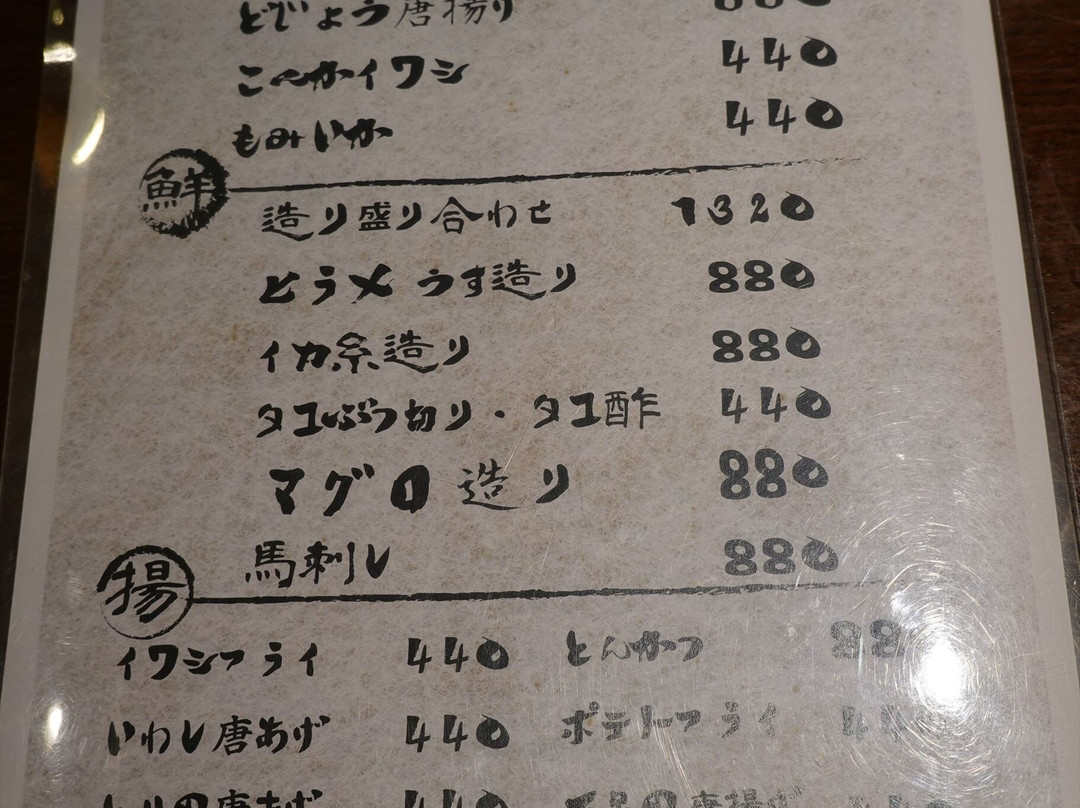 どじょう唐揚り 880
こんかイワシ 440
もみいか 440
鮮
造り盛り合わせ 1320
ヒラメうす造り 880
イカ糸造り 880
タコぶつ切り・タコ酢 440
マグロ造り 880
馬刺し 880
揚
イワシフライ 440 とんかつ 88
いわし唐あげ 440 ポテトフライ 44